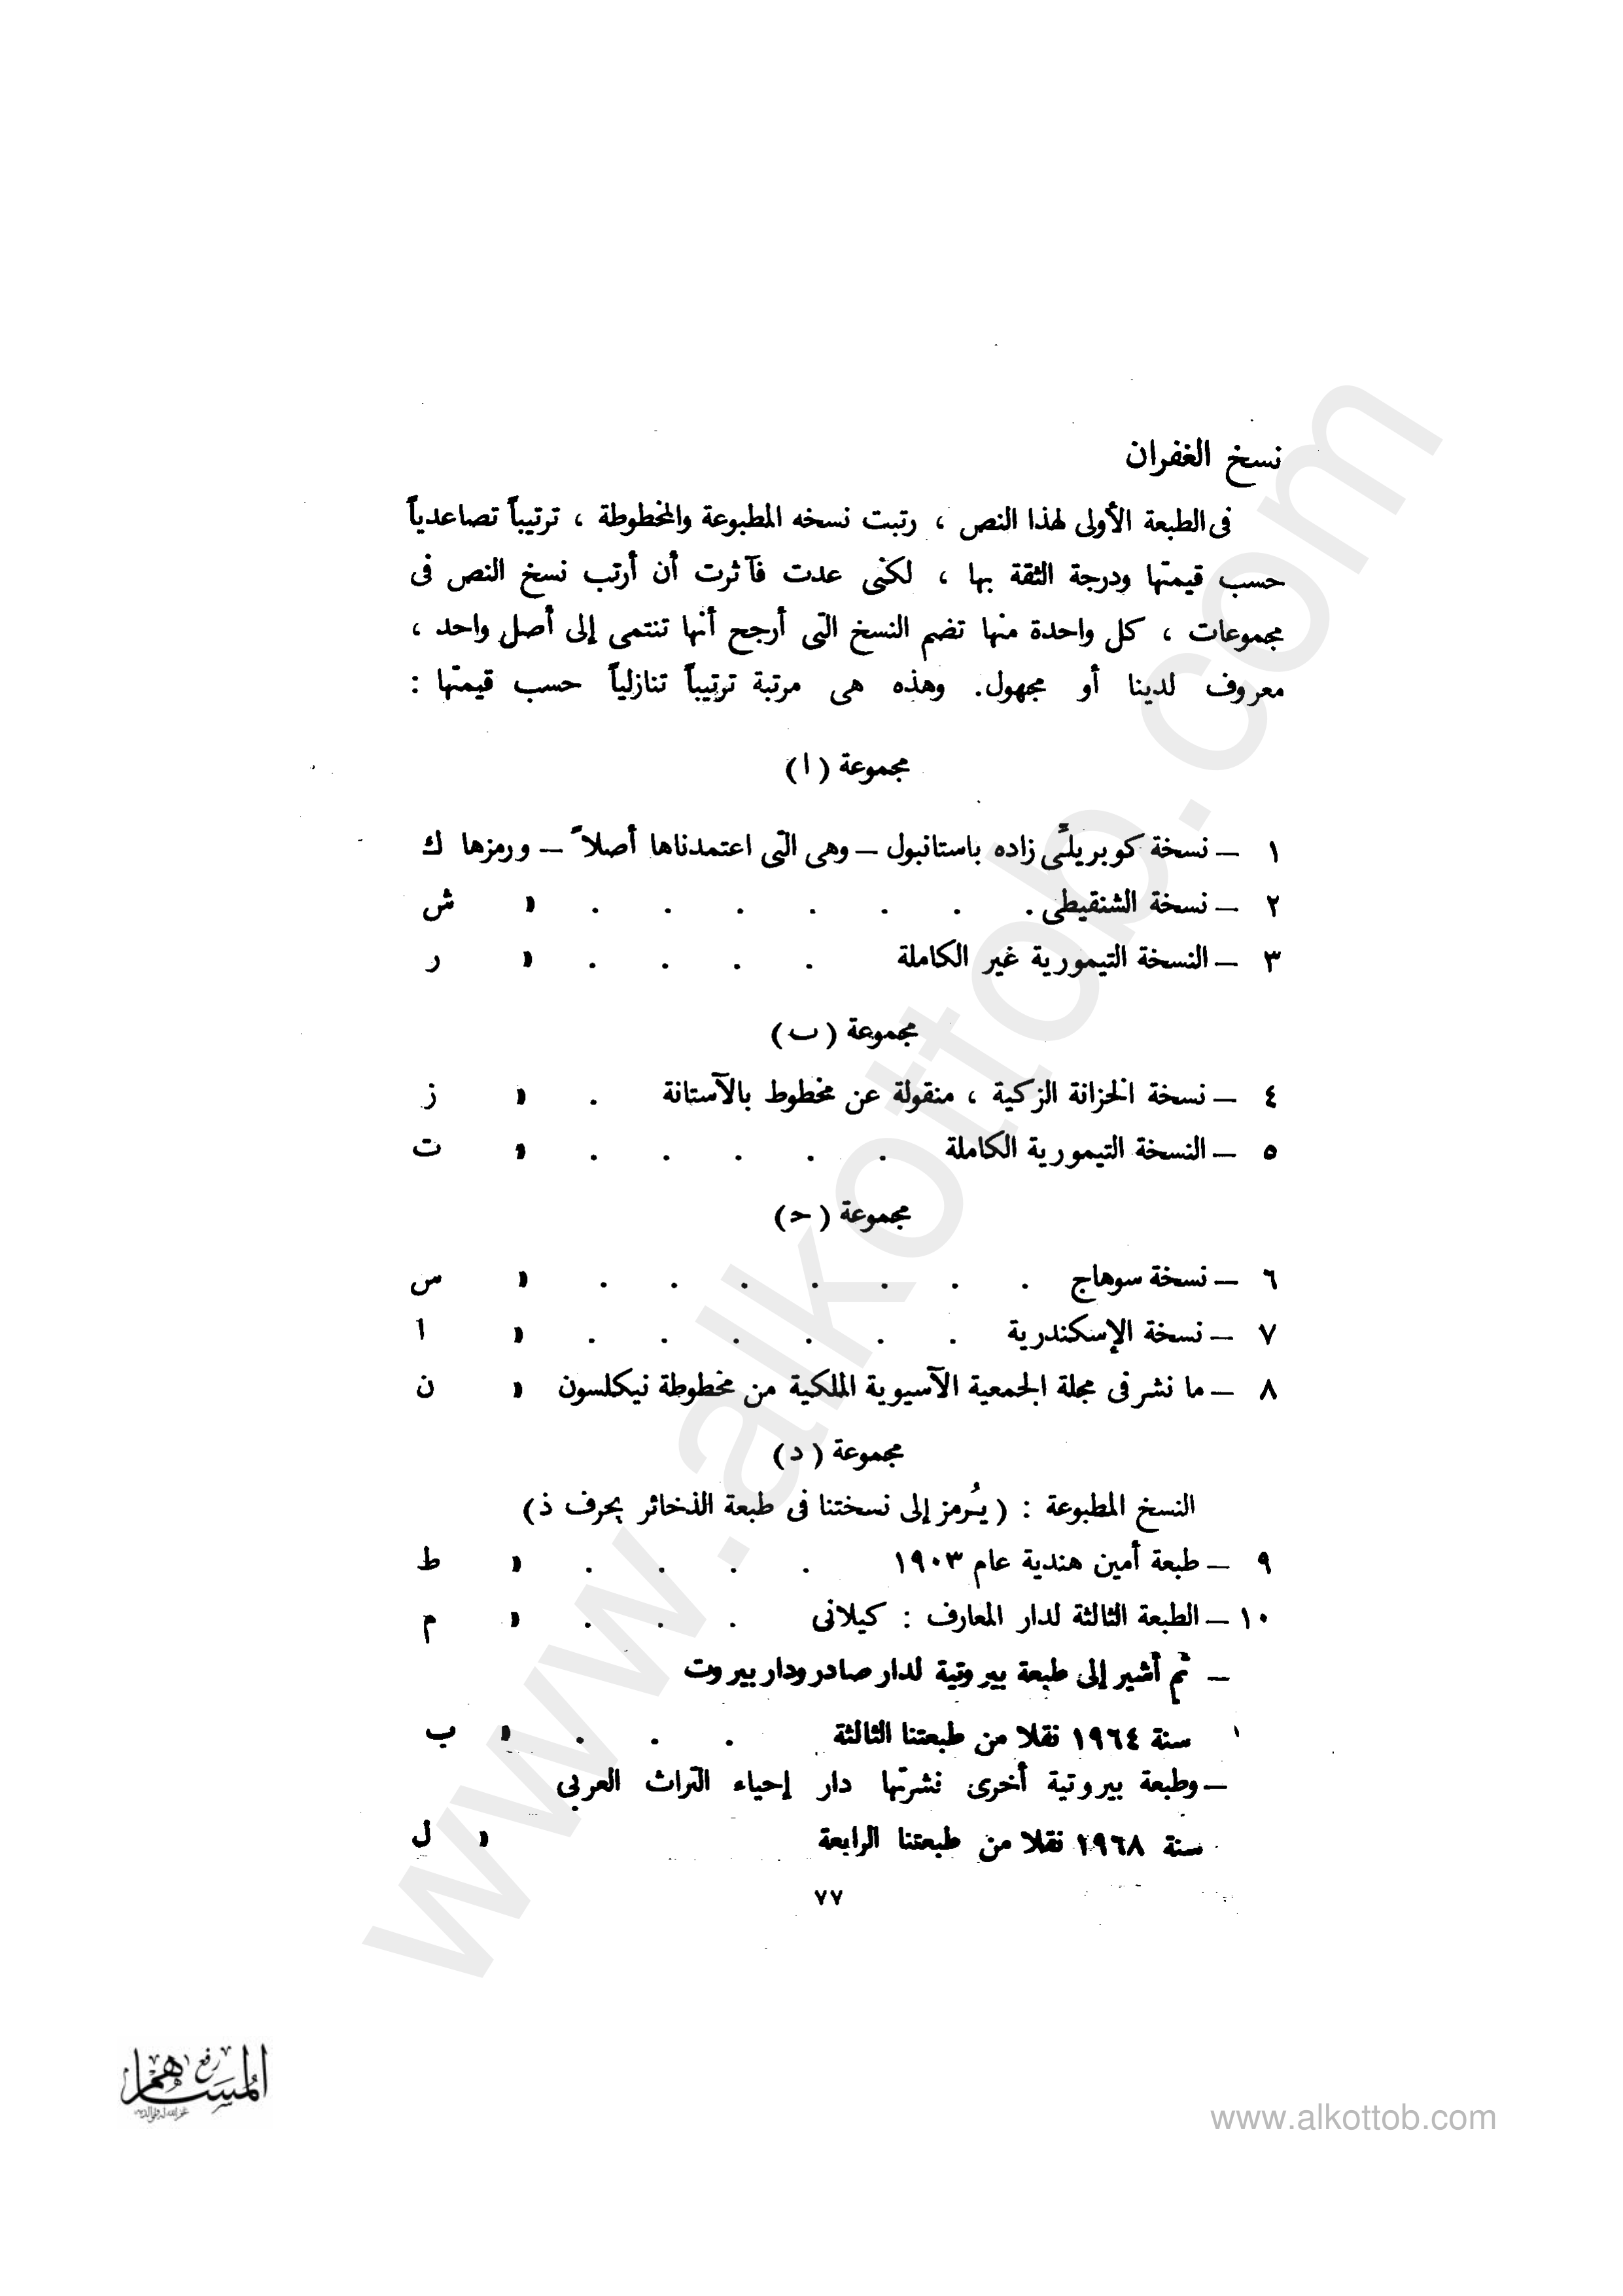 نسخ الغفران
فى الطبعة الأولى لهذا النص ، رتبت نسخه المطبوعة والمخطوطة ، ترتيباً تصاعدياً
حسب قيمتها ودرجة الثقة بها ، لكنى عدت فآثرت أن أرتب نسخ النص فى
مجموعات ، كل واحدة منها تضم النسخ التى أرجح أنها تنتمى إلى أصل واحد ،
معروف لدينا أو مجهول. وهذه هى مرتبة ترتيباً تنازلياً حسب قيمتها :
مجموعة (ا)
١ – نسخة كوبريلى زاده باستانبول – وهى التى اعتمدناها أصلاً – ورمزها ك
٢ – نسخة الشنقيطى . . . . . . . » ش
٣ – النسخة التيمورية غير الكاملة . . . . » ر
مجموعة (ب)
٤ – نسخة الخزانة الزكية ، منقولة عن مخطوط بالآستانة . » ز
٥ – النسخة التيمورية الكاملة . . . . . » ت
مجموعة (ح)
٦ – نسخة سوهاج . . . . . . . » س
٧ – نسخة الإسكندرية . . . . . . » ا
٨ – ما نشر فى مجلة الجمعية الآسيوية الملكية من مخطوطة نيكلسون » ن
مجموعة (د)
النسخ المطبوعة : (يُرمز إلى نسختنا فى طبعة الذخائر بحرف ذ)
٩ – طبعة أمين هندية عام ١٩٠٣ . . . . » ط
١٠ – الطبعة الثالثة لدار المعارف : كيلانى . . . » م
– ثم أشير إلى طبعة بيروتية لدار صادر ودار بيروت
سنة ١٩٦٤ نقلا من طبعتنا الثالثة . . . » ب
– وطبعة بيروتية أخرى نشرتها دار إحياء التراث العربى
سنة ١٩٦٨ نقلا من طبعتنا الرابعة » ل
٧٧
رفع
المساهم
www.alkottob.com
www.alkottob.com